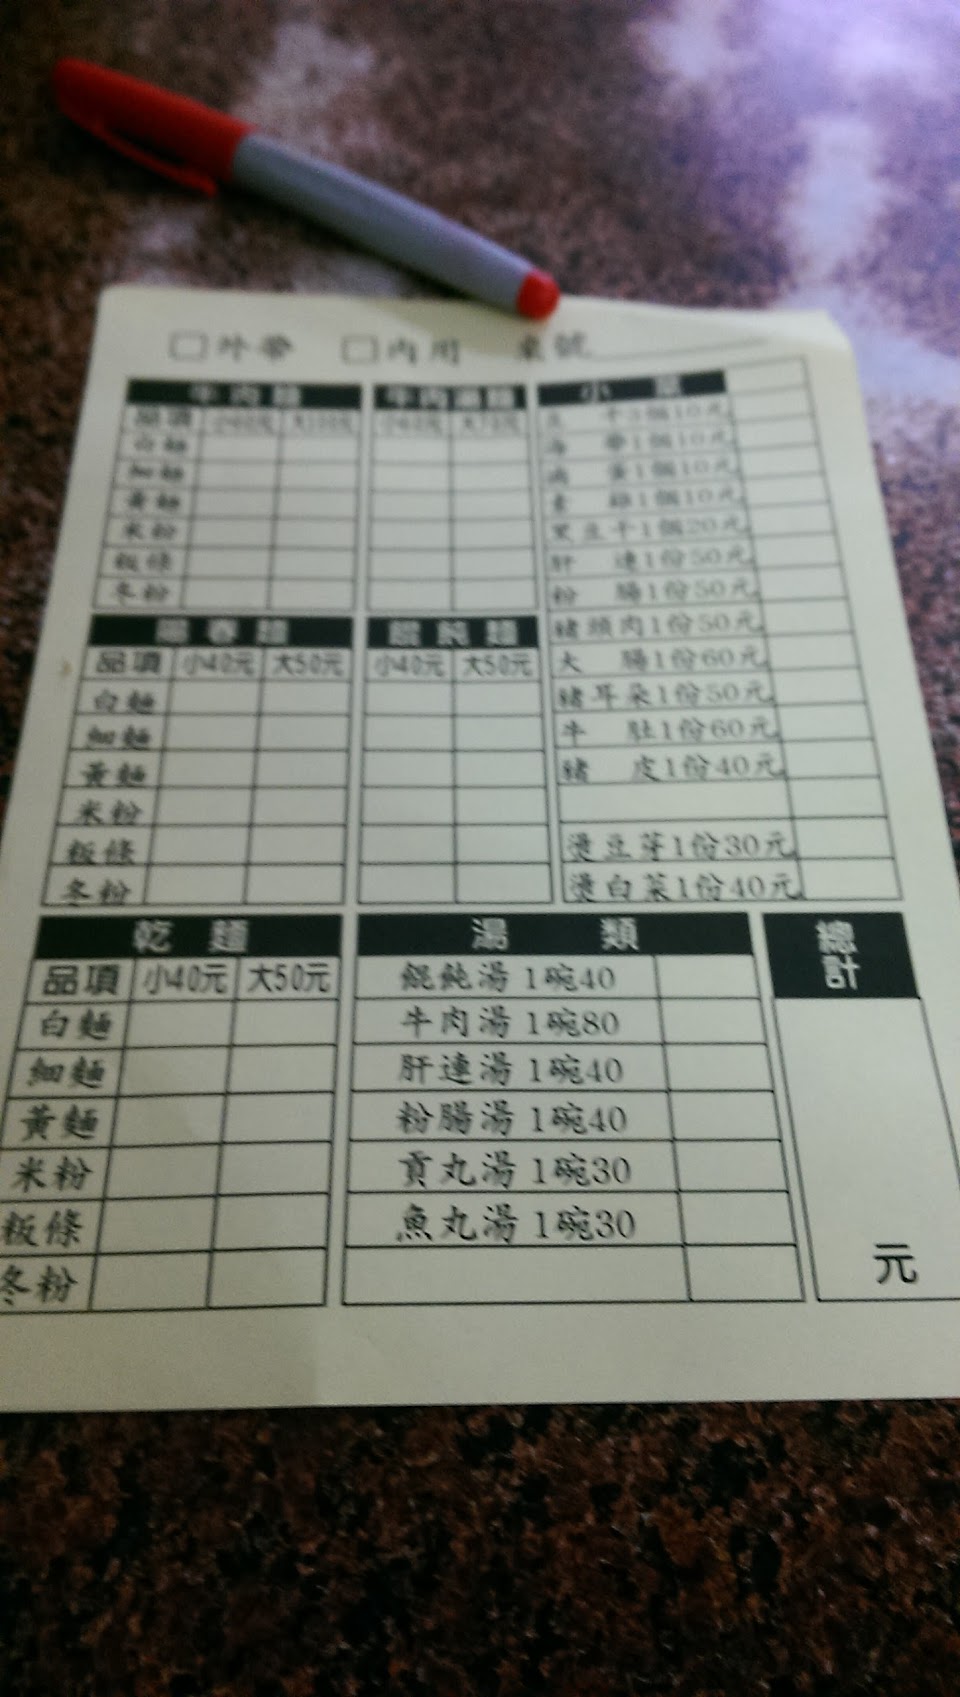 □外帶 □內用 桌號
牛肉麵
品項
白麵
細麵
黃麵
米粉
粄條
冬粉
牛肉湯麵
小菜
豆干3個10元
海帶1個10元
滷蛋1個10元
素雞1個10元
黑豆干1個20元
肝連1份50元
粉腸1份50元
豬頭肉1份50元
大腸1份60元
豬耳朵1份50元
牛肚1份60元
豬皮1份40元
燙豆芽1份30元
燙白菜1份40元
陽春麵
品項 小40元 大50元
白麵
細麵
黃麵
米粉
粄條
冬粉
餛飩麵
小40元 大50元
乾麵
品項 小40元 大50元
白麵
細麵
黃麵
米粉
粄條
冬粉
湯類
餛飩湯 1碗40
牛肉湯 1碗80
肝連湯 1碗40
粉腸湯 1碗40
貢丸湯 1碗30
魚丸湯 1碗30
總計
元